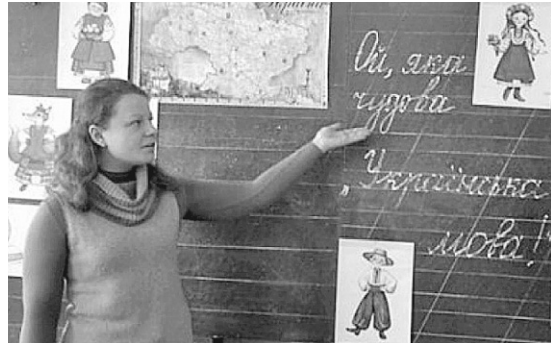 Україна
Ой, яка
чудова
„Українська
мова!"